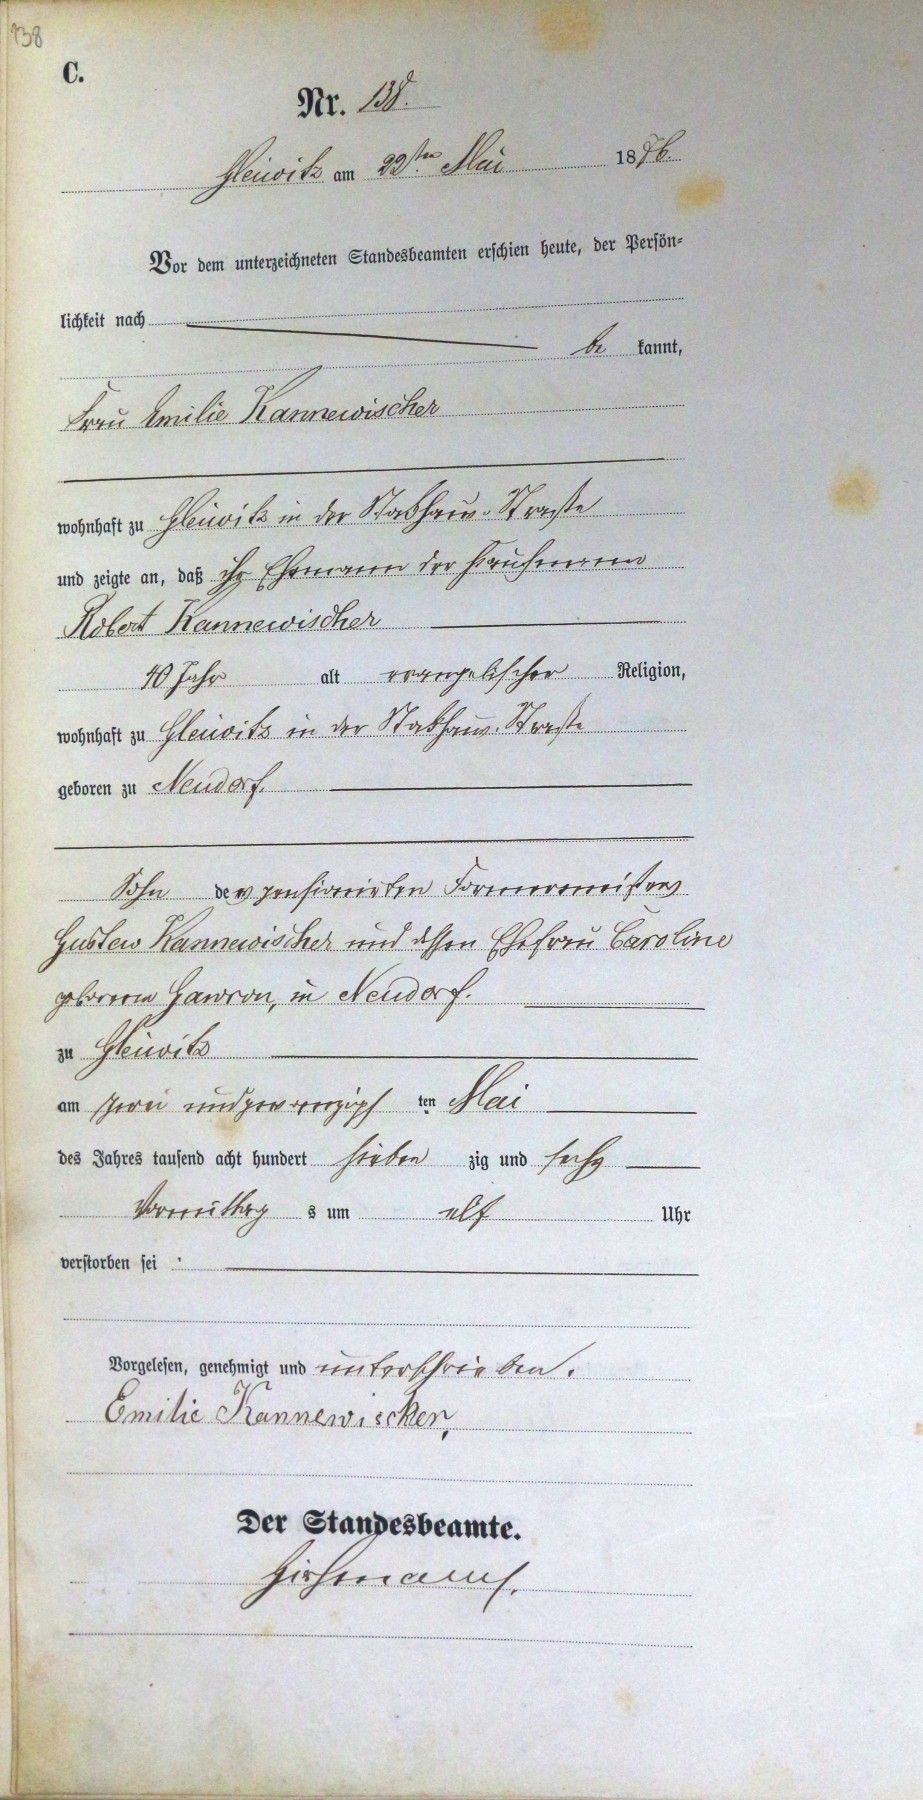 138
C.
Nr. 138.
Gleiwitz am 22ten Mai 1876.
Vor dem unterzeichneten Standesbeamten erschien heute, der Persön-
lichkeit nach
be kannt,
Frau Emilie Kannewischer
wohnhaft zu Gleiwitz in der Straße
und zeigte an, daß ihr Ehemann der Kaufmann
Robert Kannewischer
40 Jahr alt evangelischer Religion,
wohnhaft zu Gleiwitz in der Straße
geboren zu Neudorf.
Sohn des pensionirten Formermeisters
Gustav Kannewischer und dessen Ehefrau Caroline
geborenen Gawron, in Neudorf.
zu Gleiwitz
am zwei und zwanzigs ten Mai
des Jahres tausend acht hundert sieben zig und sechs
Vormittag s um elf Uhr
verstorben sei
Vorgelesen, genehmigt und unterschrieben.
Emilie Kannewischer,
Der Standesbeamte.